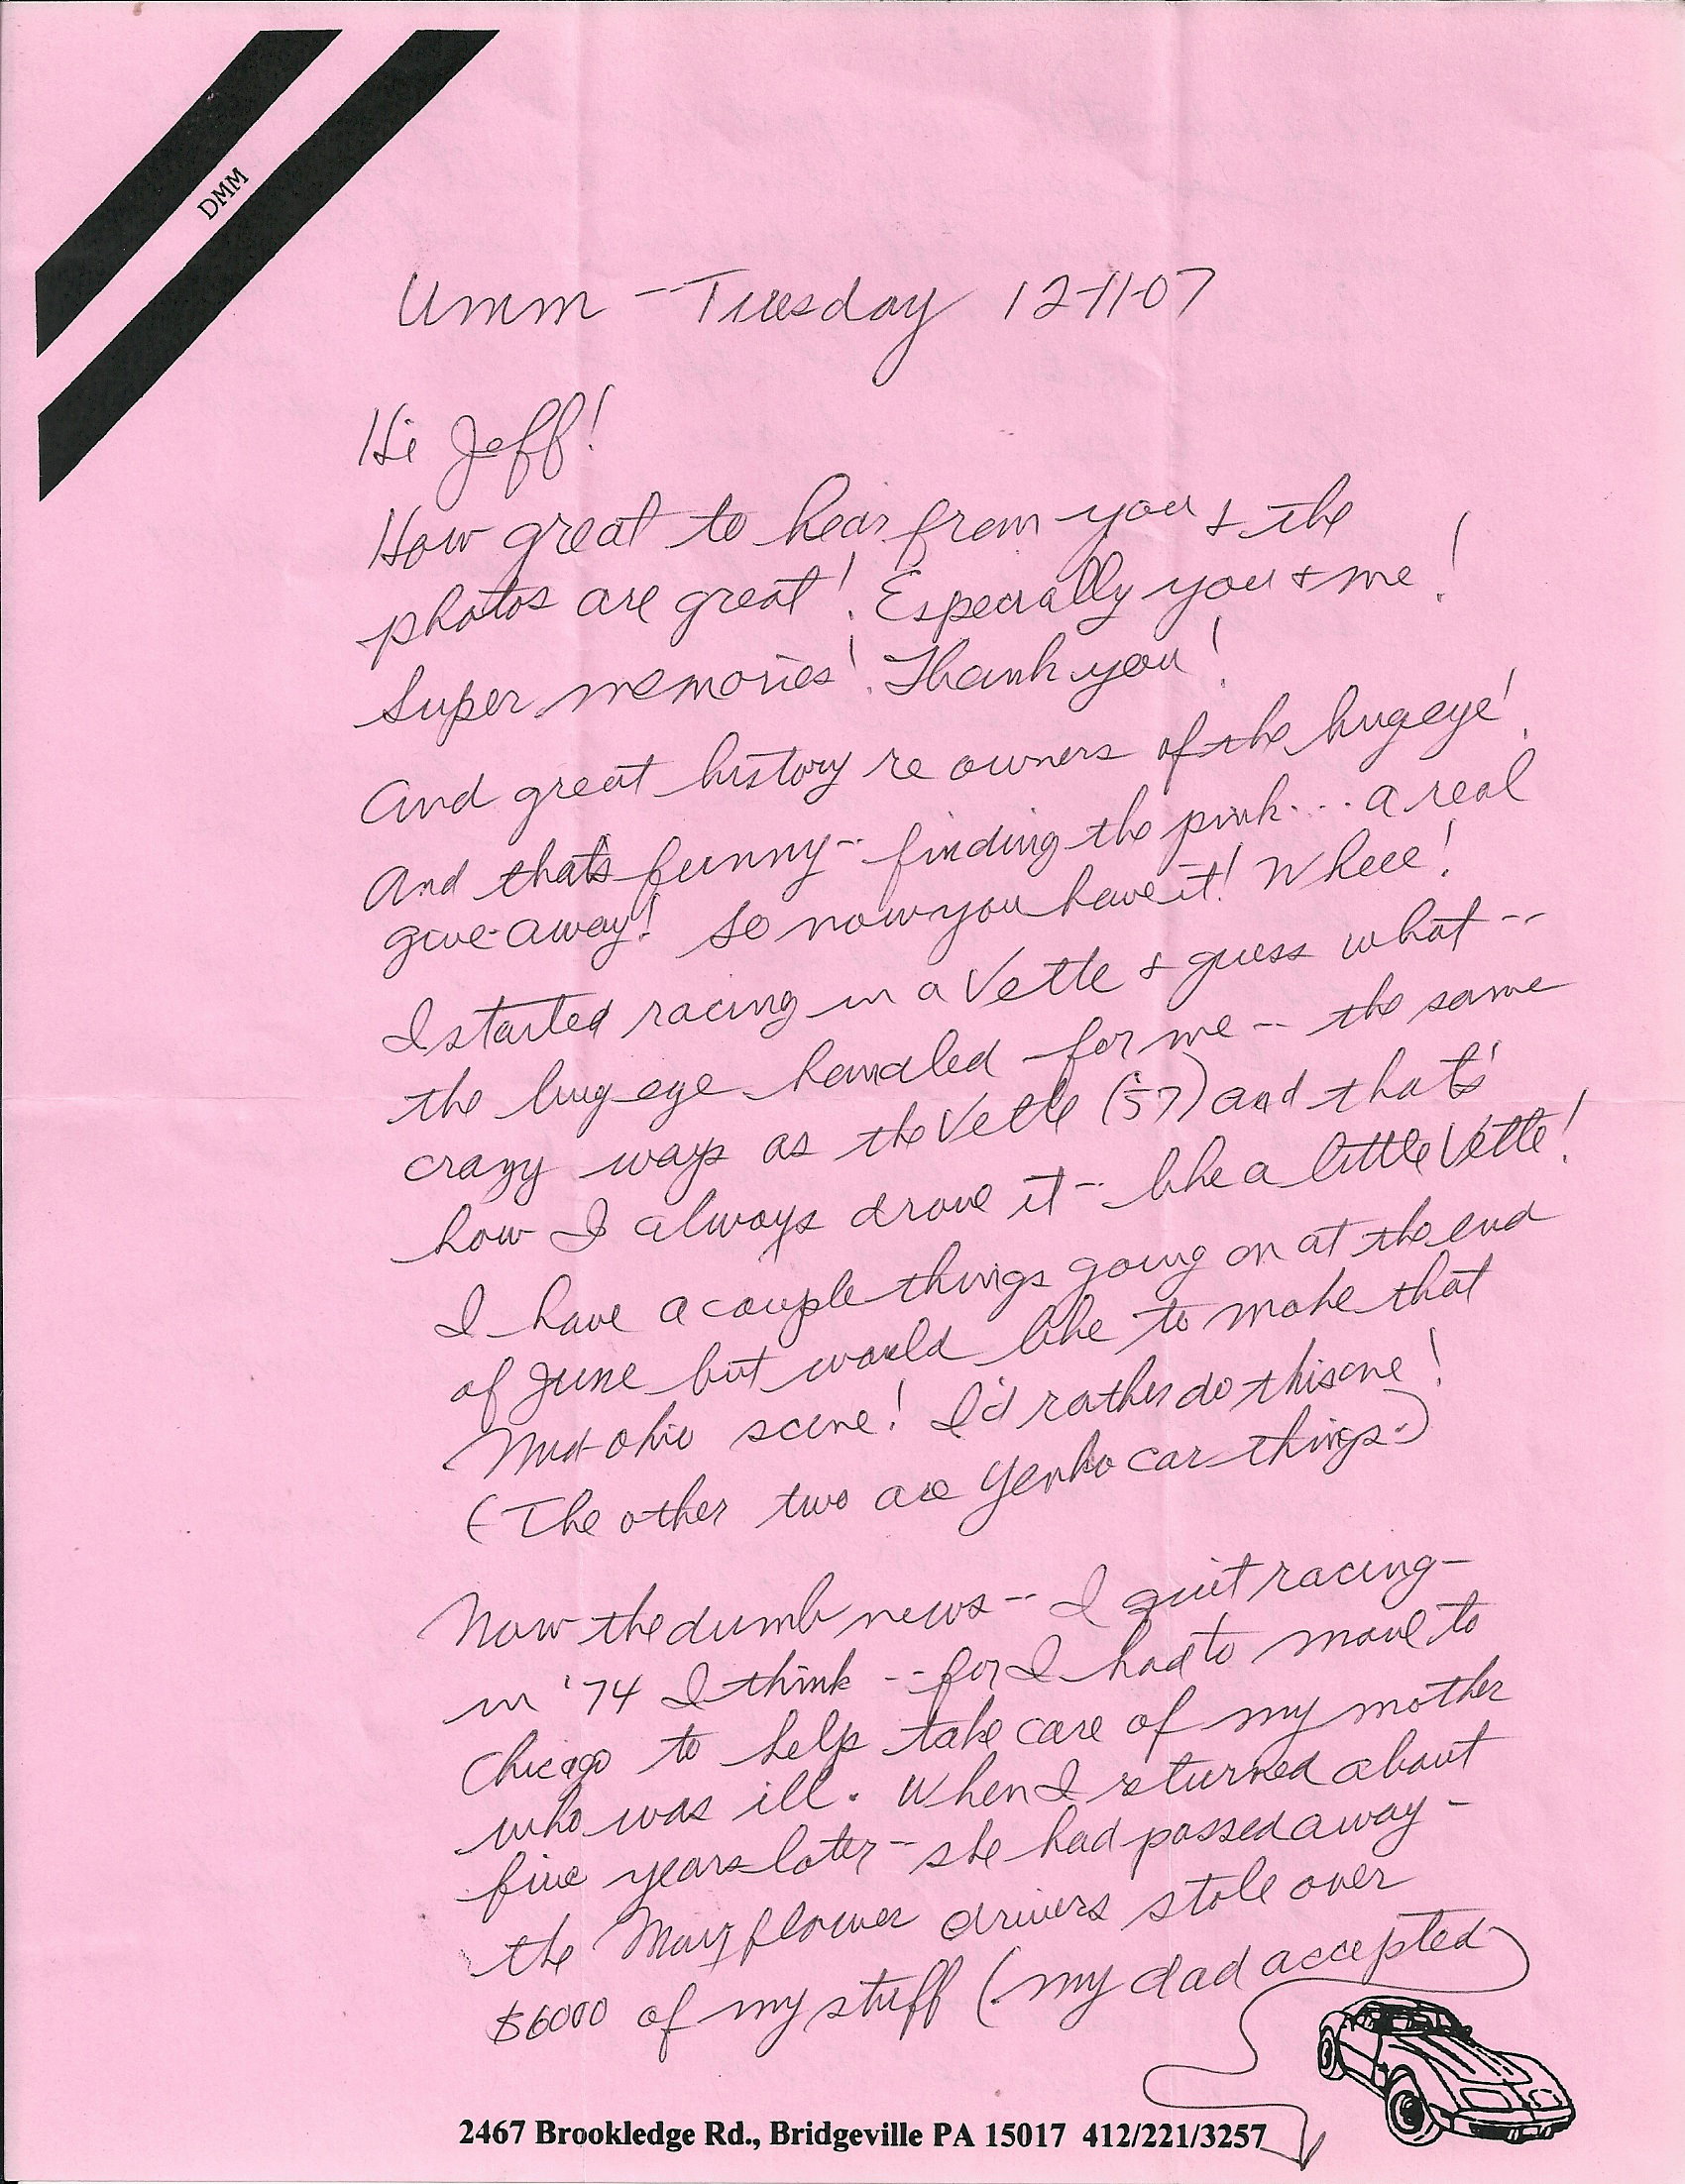 DMM
Umm -- Tuesday 12-11-07
Hi Jeff!
How great to hear from you & the
photos are great! Especially you & me!
Super memories! Thank you!
And great history re owners of the bugeye!
And that's funny -- finding the pink... a real
give-away! So now you have it! Wheee!
I started racing in a Vette & guess what --
the bugeye handled for me -- the same
crazy ways as the Vette ('57) and that's
how I always drove it -- like a little Vette!
I have a couple things going on at the end
of June but would like to make that
Mid-Ohio scene! I'd rather do this one!
(The other two are Yenko car things.)
Now the dumb news -- I quit racing -
in '74 I think -- for I had to move to
Chicago to help take care of my mother
who was ill. When I returned about
five years later - she had passed away -
the Mayflower drivers stole over
$6000 of my stuff (my dad accepted
2467 Brookledge Rd., Bridgeville PA 15017 412/221/3257